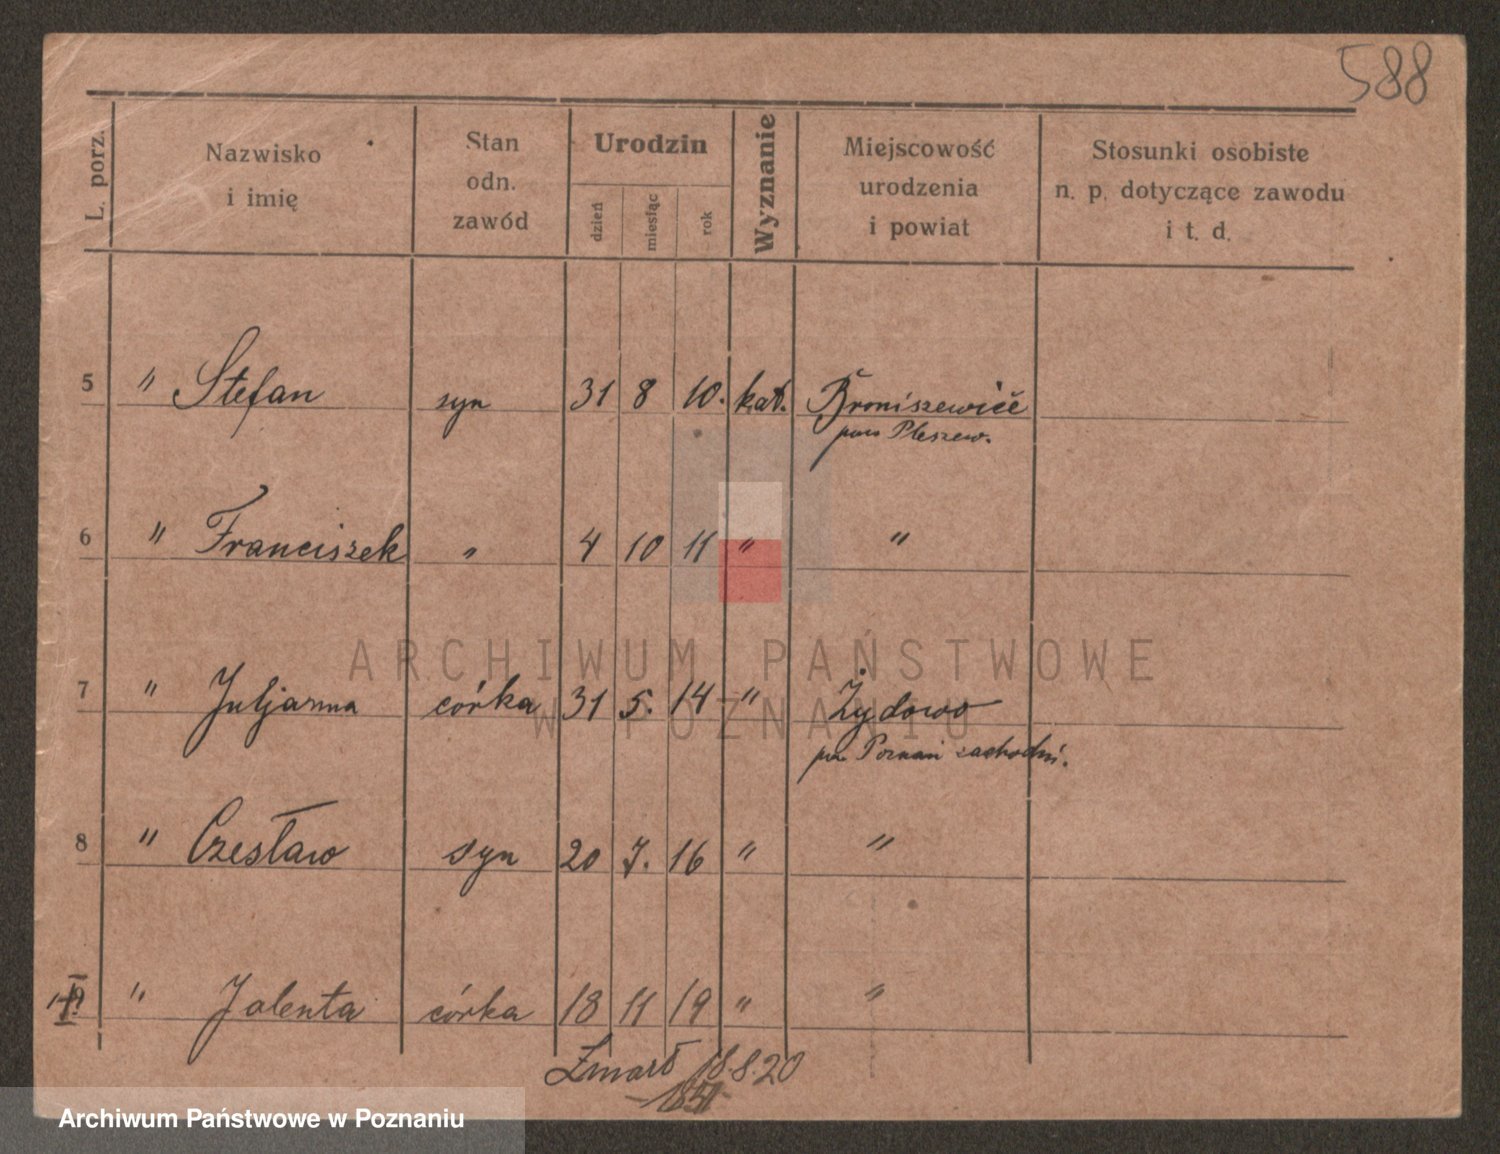 588
L. porz.
Nazwisko
i imię
Stan
odn.
zawód
Urodzin
dzień
miesiąc
rok
Wyznanie
Miejscowość
urodzenia
i powiat
Stosunki osobiste
n. p. dotyczące zawodu
i t. d.
5 " Stefan syn 31 8 10. kat. Broniszewice
pow Pleszew.
6 " Franciszek " 4 10 11 " "
ARCHIWUM PAŃSTWOWE
W POZNANIU
7 " Juljanna córka 31 5. 14 " Żydowo
pow Poznań zachodni.
8 " Czesław syn 20 7. 16 " "
" Jolenta córka 18 11 19 " "
Zmarł 18.8.20
Archiwum Państwowe w Poznaniu